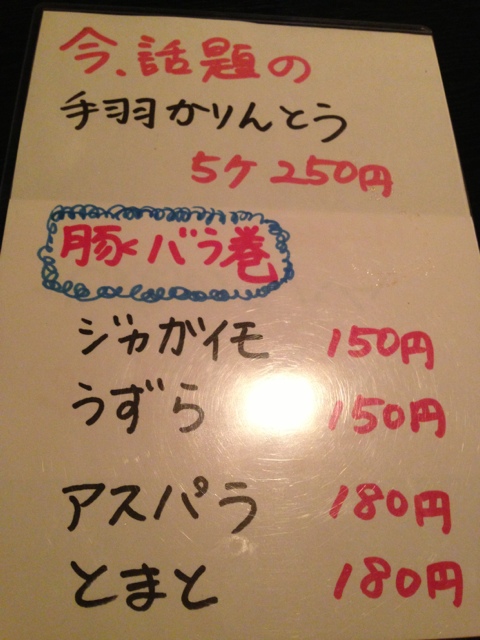 今、話題の
手羽かりんとう
5ケ 250円
豚バラ巻
ジャガイモ 150円
うずら 150円
アスパラ 180円
とまと 180円